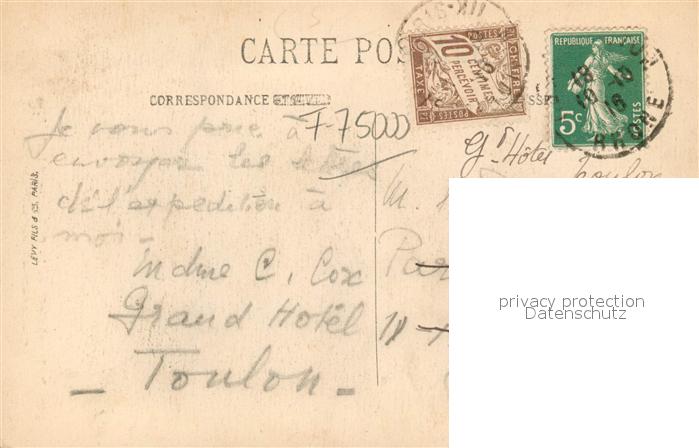 CARTE POS
CORRESPONDANCE
10
CENTIMES
À PERCEVOIR
POSTES
CHIFFRE
TAXE
REPUBLIQUE FRANÇAISE
5c
POSTES
RHONE
F-75000
Je vous prie à
envoyer les
de l'expedition à
moi -
Mdme C. Cox
Grand Hotel
- Toulon -
Gd Hôtel
Toulon
M.
LEVY FILS & Cie, PARIS.
privacy protection
Datenschutz